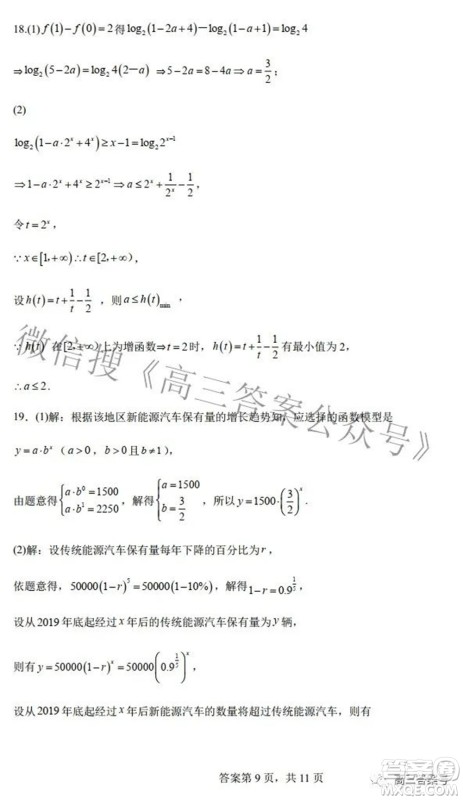 18.(1) f(1)−f(0)=2得log₂(1−2a+4)−log₂(1−a+1)=log₂4
⇒log₂(5−2a)=log₂4(2−a) ⇒5−2a=8−4a⇒a=3/2;
(2)
log₂(1−a·2ˣ+4ˣ)≥x−1=log₂2ˣ⁻¹
⇒1−a·2ˣ+4ˣ≥2ˣ⁻¹⇒a≤2ˣ+1/2ˣ−1/2,
令t=2ˣ,
∵x∈[1,+∞)∴t∈[2,+∞),
设h(t)=t+1/t−1/2，则a≤h(t)min，
∵h(t)在[2,+∞)上为增函数⇒t=2时，h(t)=t+1/t−1/2有最小值为2，
∴a≤2.
19．(1)解：根据该地区新能源汽车保有量的增长趋势知，应选择的函数模型是
y=a·bˣ（a>0，b>0且b≠1），
由题意得{a·b⁰=1500 a·b¹=2250，解得{a=1500 b=3/2，所以y=1500·(3/2)ˣ.
(2)解：设传统能源汽车保有量每年下降的百分比为r，
依题意得，50000(1−r)⁵=50000(1−10%)，解得1−r=0.9^(1/5)，
设从2019年底起经过x年后的传统能源汽车保有量为y辆，
则有y=50000(1−r)ˣ=50000(0.9^(1/5))ˣ，
设从2019年底起经过x年后新能源汽车的数量将超过传统能源汽车，则有
答案第9页，共11页
微信搜《高三答案公众号》
高三答案号
MXQE.COM